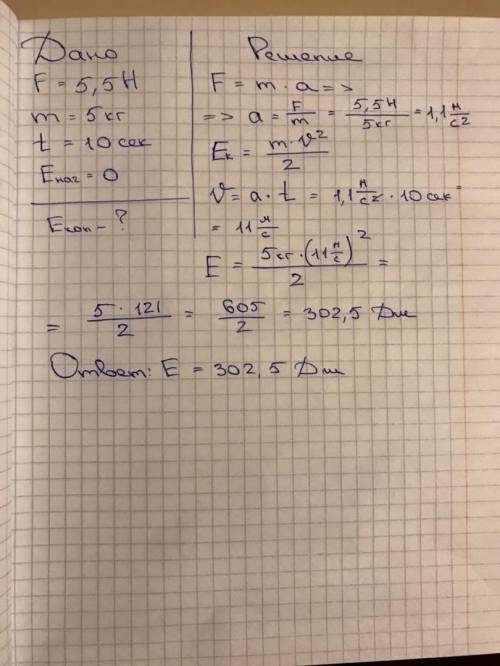 Дано
F = 5,5 Н
m = 5 кг
t = 10 сек
Eнаг = 0
Eкоп - ?
Решение
F = m · a =>
=> a = F/m = 5,5 Н / 5 кг = 1,1 м/с²
Eк = m · v² / 2
v = a · t = 1,1 м/с² · 10 сек =
= 11 м/с
E = 5 кг · (11 м/с)² / 2 =
= 5 · 121 / 2 = 605 / 2 = 302,5 Дж
Ответ: E = 302,5 Дж